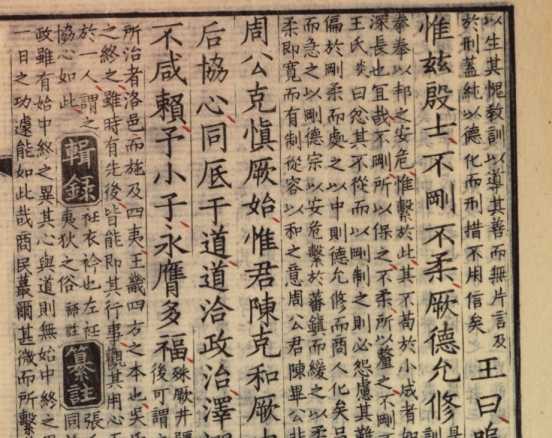 以生其愧教訓以導其善而無片言及
於刑蓋純以德化而刑措不用信矣
王曰
惟玆殷士不剛不柔厥德允修
拳拳以邦之安危惟繫於此其不苟於小成者如
深長也宜哉不剛所以保之不柔所以釐之不剛
王氏炎曰忿其不從而以剛制之則必怨慮其難
偏於剛柔而處之以中則德允修而商人化矣呂
而急之以剛德宗以安危繫於藩鎮而緩之以柔
柔即寬而有制從容以和之意周公君陳畢公非
周公克慎厥始惟君陳克和厥
后協心同厎于道道洽政治澤
不咸賴予小子永膺多福殊厥井疆
後可謂
所治者洛邑而施及四夷王畿四方之本也吳
之終之雖時有先後皆能即其行事觀其用心
於一人謂之
協心如此輯錄衽衣衿也左衽
夷狄之俗纂註張
政雖有始中終之異其心與道則無始中終之
一日之功遽能如此哉商民叢爾甚微而所繫